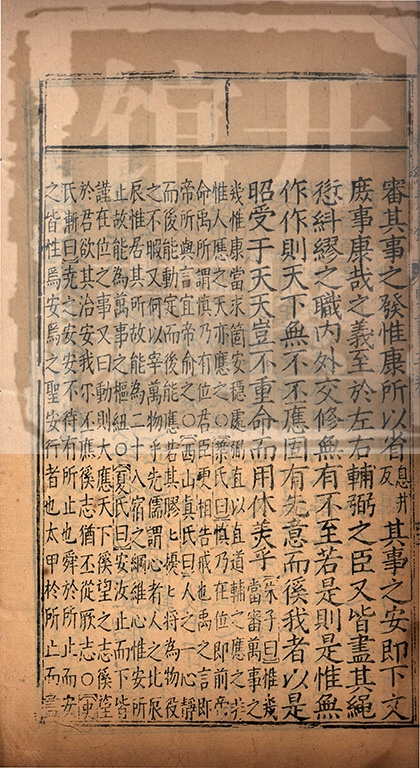 審其事之發惟康所以省息井反其事之安即下文
庶事康哉之義至於左右輔弼之臣又皆盡其繩
愆糾繆之職内外交修無有不至若是則是惟無
作作則天下無不丕應固有先意而徯我者以是
昭受于天天豈不重命而用休美乎朱子曰惟幾當審萬事之
幾惟康當求箇安穩處弼直以直道輔之應之非
惟人應之天亦應之○葉氏曰慎乃在位即前帝
命禹所謂慎乃有位君臣更相告戒也禹之言即
帝所與言宜帝俞之○西山真氏曰人之一心靜
而後能動定而後能應若其膠〻擾〻將為物役
之不暇又何以宰萬物乎先儒謂心者人之北辰
辰惟居其所故能為二十八宿之綱維心惟安所
止故能為萬事之樞紐○夏氏曰安汝止而下皆
謹在位之事又曰動則大應天下徯望之志徯望
於君欲其治安我尔丕應徯志猶丕從厥志○陳
氏漸曰堯之安安不待有所止也舜於所止而安
之皆性焉安焉之聖安行者也太甲於所止而言